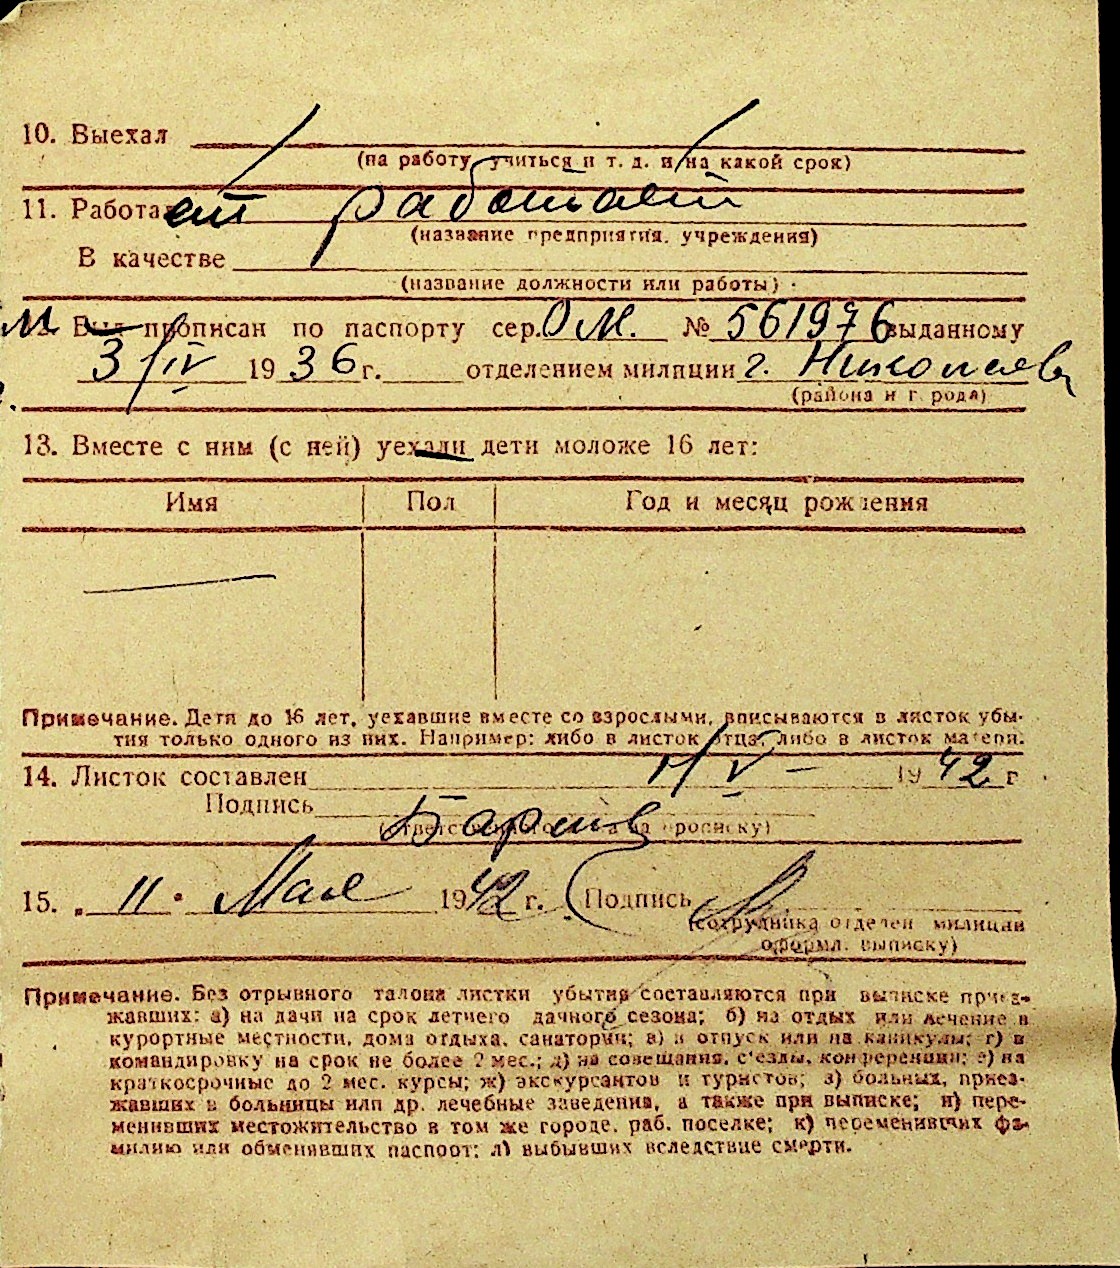 10. Выехал
(на работу, учиться и т. д. и на какой срок)
11. Работает работает
(название предприятия, учреждения)
В качестве
(название должности или работы)
Был прописан по паспорту сер. ОМ. № 561976 выданному
3/IV 1936 г. отделением милиции г. Николаев
(района и города)
13. Вместе с ним (с ней) уехали дети моложе 16 лет:
Имя Пол Год и месяц рождения
Примечание. Дети до 16 лет, уехавшие вместе со взрослыми, вписываются в листок убы-
тия только одного из них. Например: либо в листок отца, либо в листок матери.
14. Листок составлен 11/V – 1942 г
Подпись
(ответственного лица за прописку)
15. „11" Мая 1942 г. Подпись
(сотрудника отделен милиции
оформл. выписку)
Примечание. Без отрывного талона листки убытия составляются при выписке приез-
жавших: а) на дачи на срок летнего дачного сезона; б) на отдых или лечение в
курортные местности, дома отдыха, санатории; в) в отпуск или на каникулы; г) в
командировку на срок не более 2 мес.; д) на совещания, с'езды, конференции; е) на
краткосрочные до 2 мес. курсы; ж) экскурсантов и туристов; з) больных, приез-
жавших в больницы или др. лечебные заведения, а также при выписке; и) пере-
менивших местожительство в том же городе, раб. поселке; к) переменивших фа-
милию или обменявших паспорт; л) выбывших вследствие смерти.